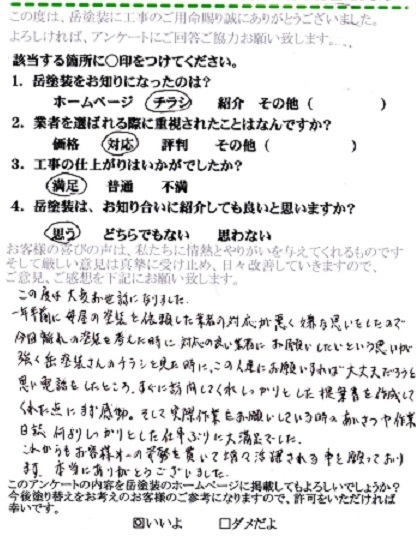 この度は、岳塗装に工事のご用命賜り誠にありがとうございました。
よろしければ、アンケートにご回答ご協力お願い致します。
該当する箇所に○印をつけてください。
1. 岳塗装をお知りになったのは?
ホームページ チラシ 紹介 その他 ( )
2. 業者を選ばれる際に重視されたことはなんですか?
価格 対応 評判 その他 ( )
3. 工事の仕上がりはいかがでしたか?
満足 普通 不満
4. 岳塗装は、お知り合いに紹介しても良いと思いますか?
思う どちらでもない 思わない
お客様の喜びの声は、私たちに情熱とやりがいを与えてくれるものです
そして厳しい意見は真摯に受け止め、日々改善していきますので、
ご意見、ご感想を下記にお願い致します。
この度は大変お世話になりました。
一年半前に母屋の塗装を依頼した業者の対応が悪く嫌な思いをしたので
今回離れの塗装を考えた時に対応の良い業者にお願いしたいという思いが
強く岳塗装さんのチラシを見た時に、この人達にお願いすれば大丈夫だろうと
思い電話をしたところ、すぐに訪問してくれしっかりとした提案書を作成して
くれた点にまず感動。そして実際作業をお願いしている時のあいさつや作業
日誌、何よりしっかりとした仕事ぶりに大満足でした。
これからもお客様への姿勢を貫いて益々活躍される事を願っており
ます。本当にありがとうございました。
このアンケートの内容を岳塗装のホームページに掲載してもよろしいでしょうか?
今後塗り替えをお考えのお客様のご参考になりますので、許可をいただければ
幸いです。
☑いいよ □ダメだよ